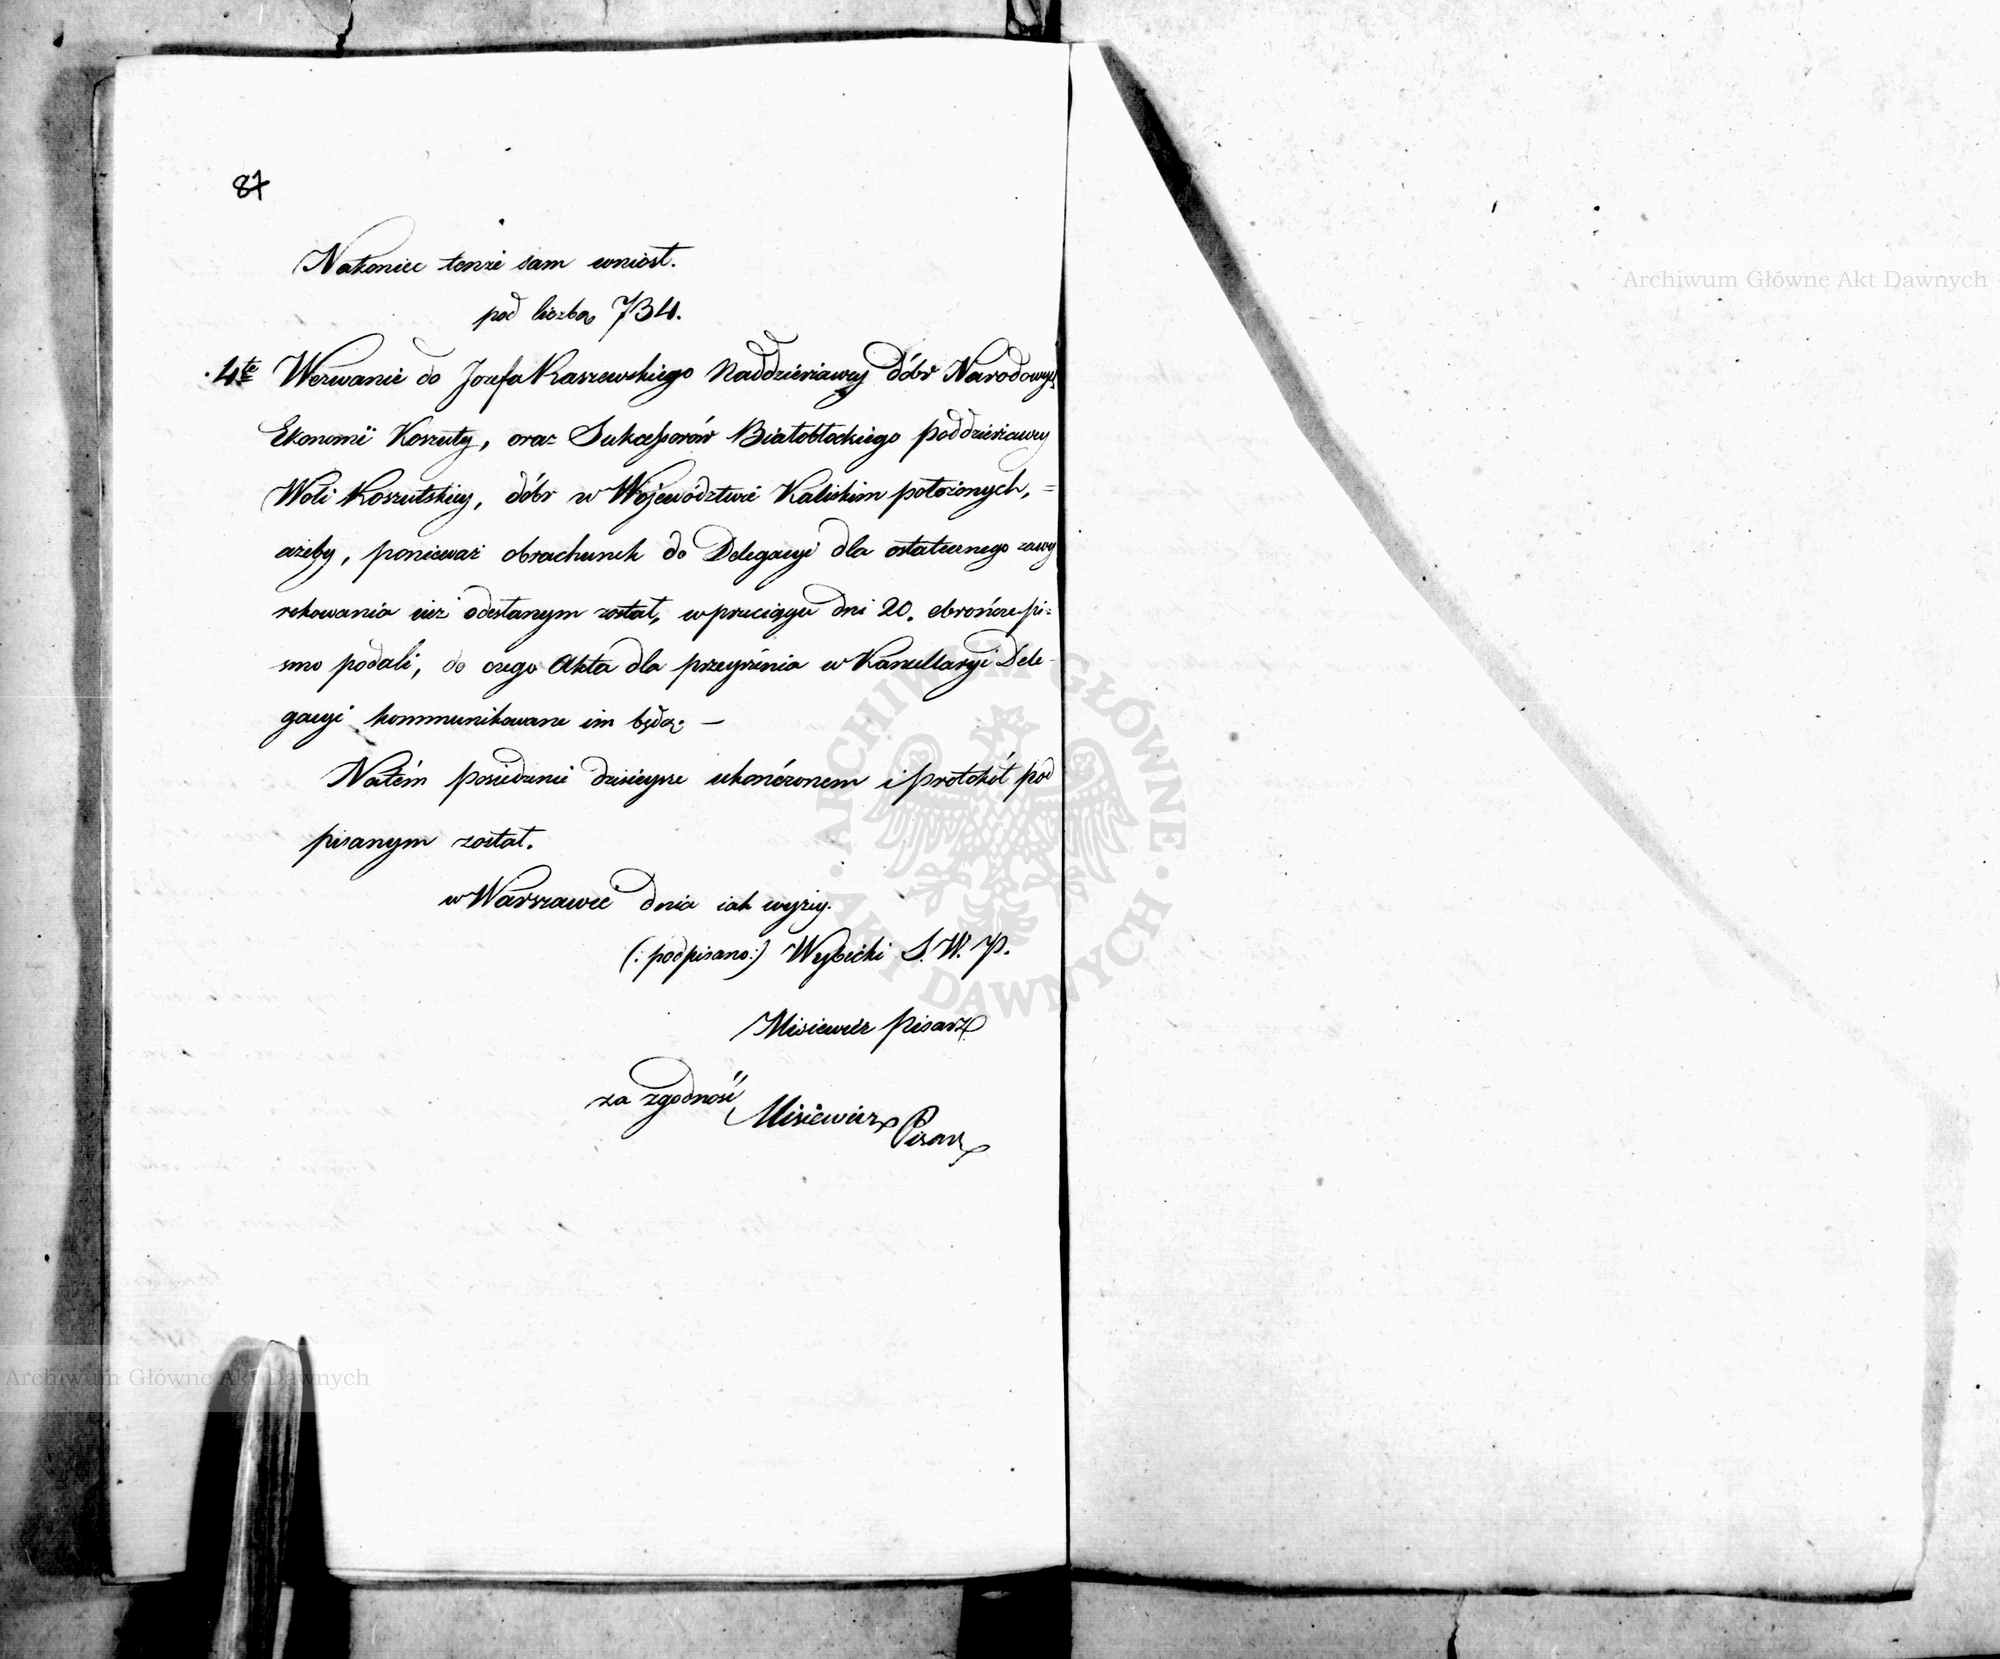 87
Nakoniec tenże sam wniosł.
pod liczbą 734.
4te Wezwanie do Jozefa Kaszewskiego Naddzierżawcy dóbr Narodowych
Ekonomii Koszuty, oraz Sukcessorów Białobłockiego poddzierżawcy
Woli Koszutskiey, dóbr w Wojewódzwie Kaliskim położonych, =
ażeby, ponieważ obrachunek do Delegacyi dla ostatecznego zawy
rokowania iuż odesłanym został, w przeciągu dni 20. obrończe pi=
smo podali, do czego Akta dla przeyrzenia w Kancellaryi Dele-
gacyi kommunikowane im będą: —
Natém posiedzenie dzisieysze ukończonem i protokół pod
pisanym został.
w Warszawie dnia iak wyżey.
(: podpisano:) Wybicki S. W. P.
Misiewicz Pisarz
za zgodność Misiewicz Pisarz
Archiwum Główne Akt Dawnych
Archiwum Główne Akt Dawnych
ARCHIWUM GŁÓWNE AKT DAWNYCH